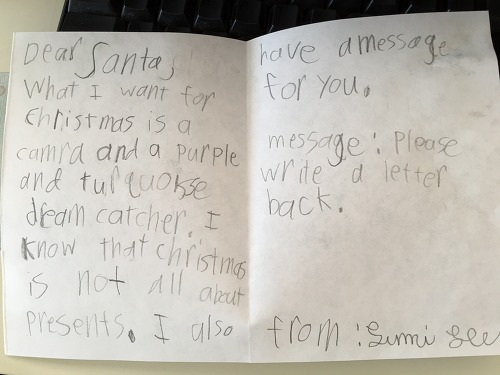 Dear Santa,
What I want for
Christmas is a
camra and a purple
and turquokse
dream catcher. I
know that christmas
is not all about
presents. I also
have a message
for you.
message: Please
write a letter
back.
from: Sumi